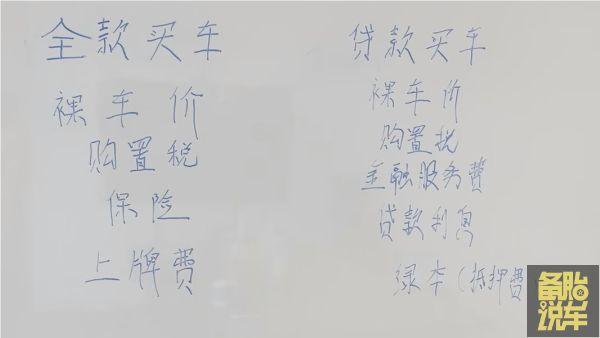 全款买车
裸车价
购置税
保险
上牌费
贷款买车
裸车价
购置税
金融服务费
贷款利息
绿本(抵押费
备胎
说车